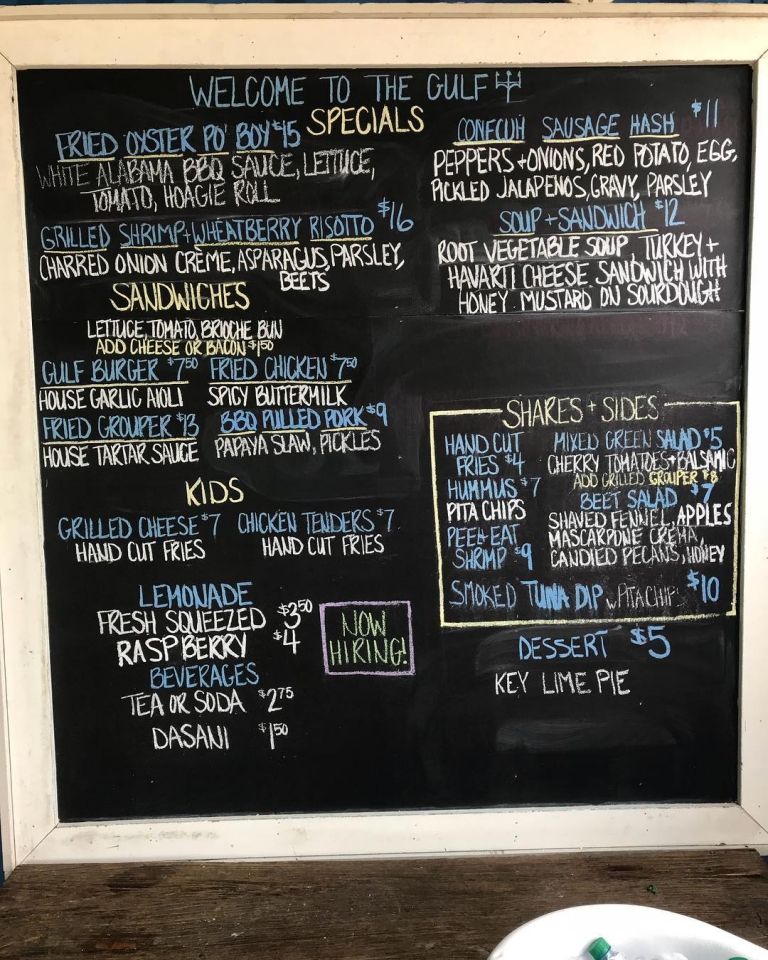 WELCOME TO THE GULF
SPECIALS
FRIED OYSTER PO' BOY $15
WHITE ALABAMA BBQ SAUCE, LETTUCE,
TOMATO, HOAGIE ROLL
GRILLED SHRIMP+WHEATBERRY RISOTTO $16
CHARRED ONION CRÈME, ASPARAGUS, PARSLEY,
BEETS
CONECUH SAUSAGE HASH $11
PEPPERS+ONIONS, RED POTATO, EGG,
PICKLED JALAPENOS, GRAVY, PARSLEY
SOUP+SANDWICH $12
ROOT VEGETABLE SOUP, TURKEY+
HAVARTI CHEESE SANDWICH WITH
HONEY MUSTARD ON SOURDOUGH
SANDWICHES
LETTUCE, TOMATO, BRIOCHE BUN
ADD CHEESE OR BACON $1.50
GULF BURGER $7.50
HOUSE GARLIC AIOLI
FRIED CHICKEN $7.50
SPICY BUTTERMILK
FRIED GROUPER $13
HOUSE TARTAR SAUCE
BBQ PULLED PORK $9
PAPAYA SLAW, PICKLES
KIDS
GRILLED CHEESE $7
HAND CUT FRIES
CHICKEN TENDERS $7
HAND CUT FRIES
LEMONADE
FRESH SQUEEZED $3.50
RASPBERRY $4
BEVERAGES
TEA OR SODA $2.75
DASANI $1.50
NOW
HIRING!
SHARES + SIDES
HAND CUT
FRIES $4
HUMMUS $7
PITA CHIPS
PEEL+EAT
SHRIMP $9
MIXED GREEN SALAD $5
CHERRY TOMATOES+BALSAMIC
ADD GRILLED GROUPER $8
BEET SALAD $7
SHAVED FENNEL, APPLES
MASCARPONE CREMA,
CANDIED PECANS, HONEY
SMOKED TUNA DIP w/PITA CHIPS $10
DESSERT $5
KEY LIME PIE